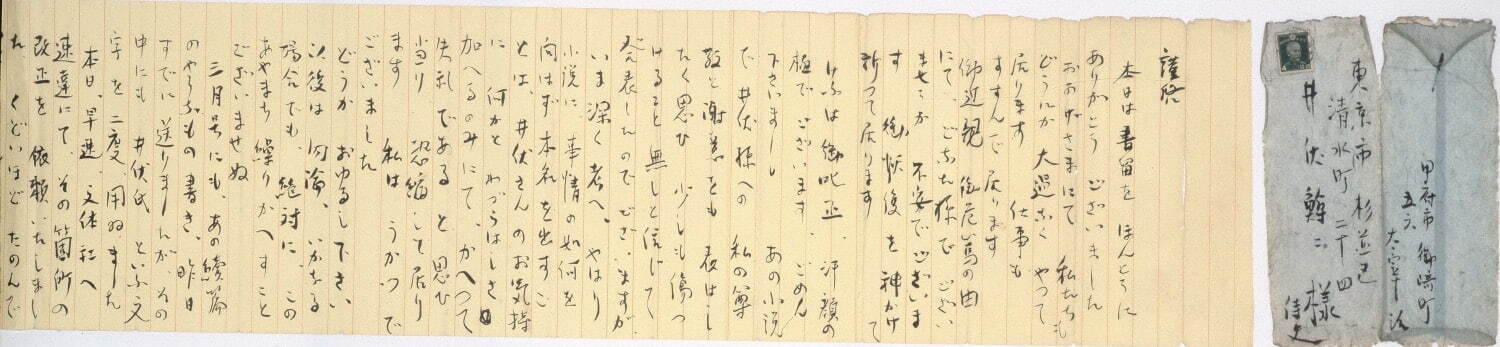 謹啓
本日は書留を ほんとうに
ありがとう ございました
おかげさまにて 私たちも
どうにか 大過なく やつて
居ります 仕事も
すすんで 居ります
御近親 御危篤の由
にて、様で ござい
ませうか 不安で ございま
す 御恢復を 神かけて
祈つて居ります
けふは 御叱正、汗顔の
極で ございます、ごめん
下さいまし あの小説
で 井伏様への 私の尊
敬と謝意をも 表はし
たく思ひ 少しも傷つ
けること無しと信じて
発表したので ございますが、
いま深く考へ、やはり
小説に、事情の如何を
問はず 本名を出すこ
とは、井伏さんのお気持
に 何かと わづらはしさ
加へるのみにて、かへつて
失礼であると思ひ
当り 恐縮して居り
ます 私は うかつで
ございました
どうか おゆるし下さい
以後は 勿論、いかなる
場合でも、絶対に、この
あやまち繰りかへすこと
ございませぬ
三月号にも、あの続篇
のやうなもの書き、昨日
すでに送りましたが、その
中にも 井伏氏 といふ文
字を二度、用ゐました
本日、早速、文体社へ
速達にて、その箇所の
改正を 依頼いたしまし
た、くどいほど たのんで
東京市 杉並区
清水町二十四
井伏鱒二様
侍史
甲府市御崎町
五六
太宰治